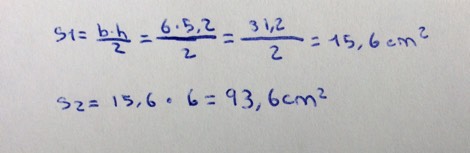 S1 = b·h/2 = 6·5,2/2 = 31,2/2 = 15,6 cm²
S2 = 15,6 · 6 = 93,6 cm²